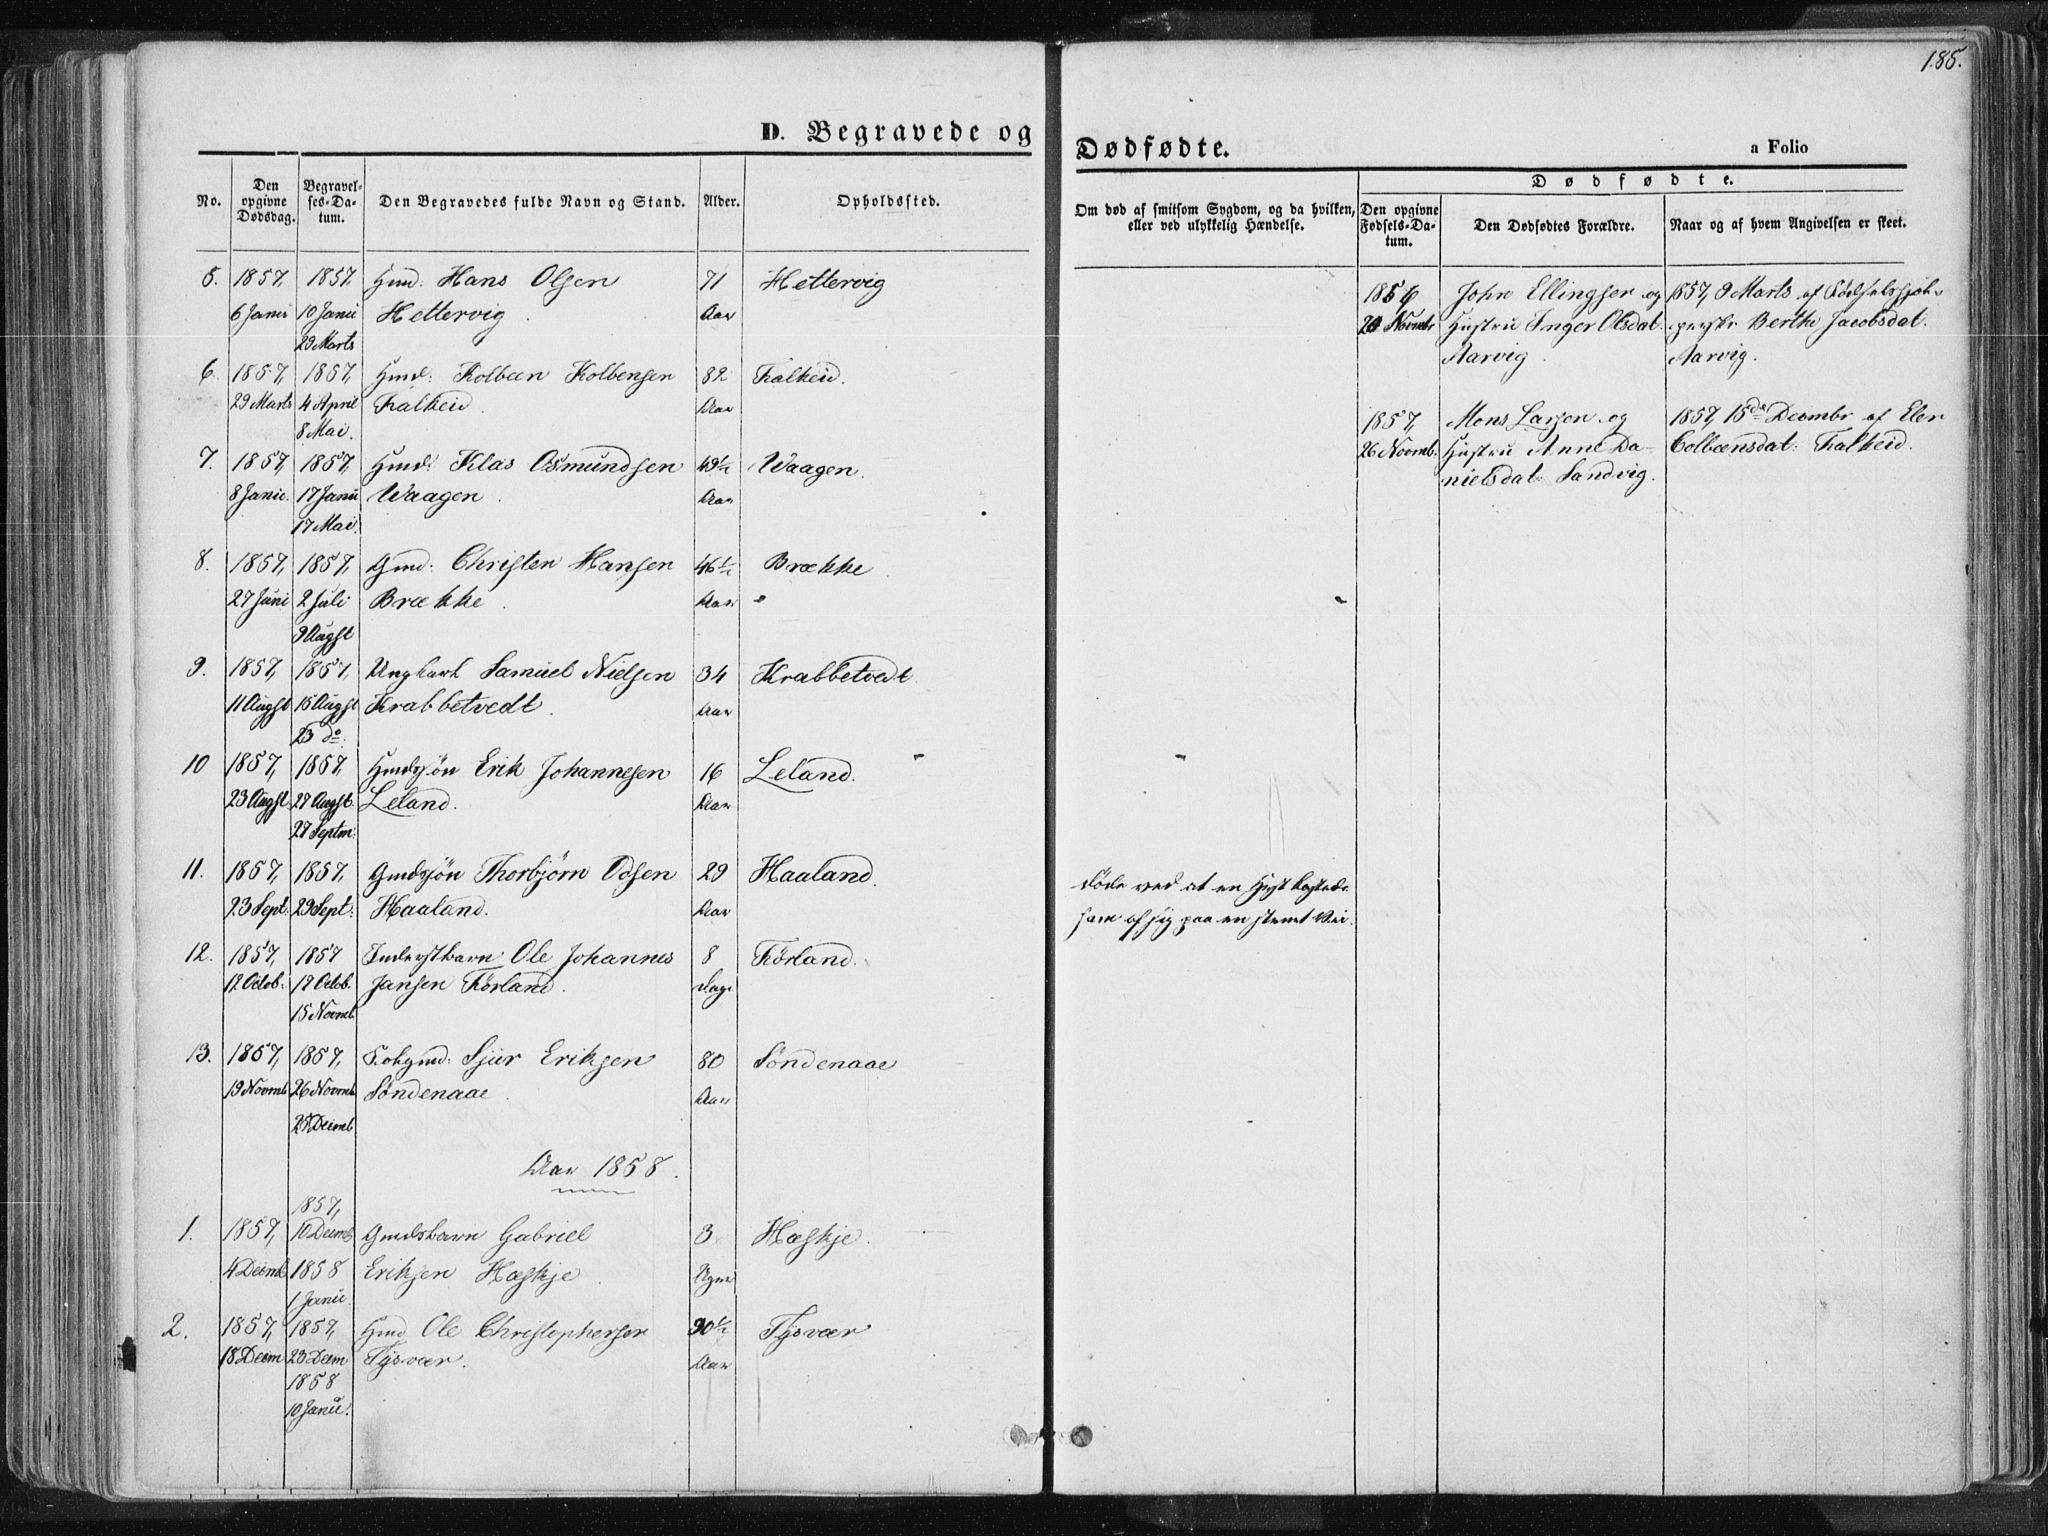 185.
D. Begravede og
Dødfødte.
a Folio
No.
Den opgivne Dødsdag.
Begravelses-Datum.
Den Begravedes fulde Navn og Stand.
Alder.
Opholdssted.
Om død af smitsom Sygdom, og da hvilken, eller ved ulykkelig Hændelse.
Dødfødte.
Den opgivne Fødsels-Datum.
Den Dødfødtes Forældre.
Naar og af hvem Angivelsen er skeet.
5. 1857, 1857. Gmd: Hans Olsen 71 Hettervig
6 Janu 10 Janu Hettervig. Aar
29 Marts
6. 1857, 1857, Gmd: Kolbeen Kolbensen 82 Falkeid.
29 Marts 4 April Falkeid. Aar
8 Mai.
7. 1857, 1857, Gmd: Klas Osmundsen 49½ Waagen.
8 Janu. 17 Janu Waagen. Aar
17 Mai.
8. 1857, 1857, Gmd: Christen Hansen 46½ Brække
27 Juni 2 Juli Brække. Aar
9 Augst
9. 1857, 1857, Ungkarl Samuel Nielsen 34 Krabbetvedt
11 Augst 15 Augst Krabbetvedt. Aar
23 do.
10 1857, 1857, Gmdsøn Erik Johannesen 16 Leland.
23 Augst. 27 Augst. Leland. Aar
27 Septm:
11. 1857, 1857, Gmdsøn Thorbjørn Odsen 29 Haaland.
23 Sept: 29 Sept: Haaland. Aar
12. 1857, 1857 Inderstbarn Ole Johannes 8 Førland.
12 Octob: 17 Octob. Jansen Førland. Dage
15 Novmb.
13. 1857, 1857, Folgmd: Sjur Eriksen 80 Søndenaae
19 Novmb 26 Novmb Søndenaae. Aar
Decmb
Aar 1858.
1857,
1. 1857, 10 Decmb Gmdsbarn Gabriel 3 Hæskje.
4 Decmb 1858 Eriksen Hæskje. Uger
1 Janu.
2. 1857, 1857, Gmd Ole Christophersen 90½ Tysvær
18 Decm 23 Decm Tysvær. Aar
1858
10 Janu.
døde ved at en Hest kastede
ham af sig paa en stenet Vei.
1856 John Ellingsen og 1857, 9 Marts af Fødselshjel-
Novmbr Hustru Inger Olsdat. persk Berthe Jacobsdat.
Aarvig. Aarvig.
1857, Mons Larsen og 1857, 15de Decmbr af Elen
26 Novmb. Hustru Anne Da- Colbænsdat: Falkeid.
nielsdat: Sandvig.